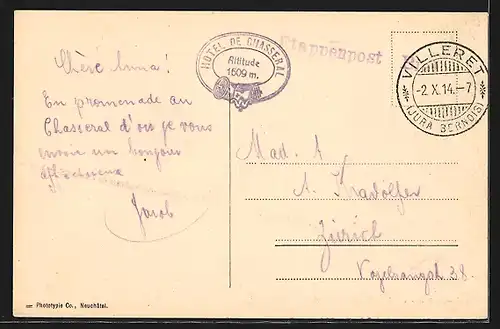 HOTEL DE CHASSERAL
Altitude
1609 m.
Etappenpost
VILLERET
-2. X. 14.-7
(JURA BERNOIS)
Chère Anna!
En promenade au
Chasseral d'où je vous
envoie un bonjour
affectueux
Jacob
Mad. A
A. Kradolfer
Zürich
Vogelsangst 38
Phototypie Co., Neuchâtel.